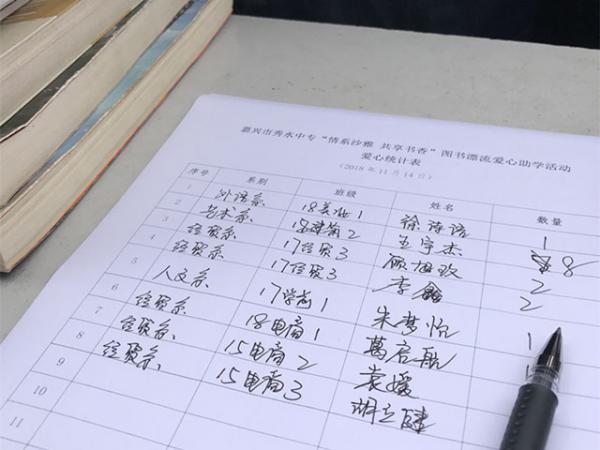 嘉兴市秀水中专“情系沙雅 共享书香”图书漂流爱心助学活动
爱心统计表
(2018年11月14日)
序号 系别 班级 姓名 数量
1 外语系 1 徐诗语 1
2 艺术系 2 王宇杰 8
3 经贸系 17经贸3 顾 2
4 经贸系 17经贸3 李鑫 2
5 人文系 17学前1 朱梦怡 1
6 经贸系 18电商1 葛启航 1
7 经贸系 15电商2 袁媛
8 经贸系 15电商3 胡立健
9
10
11